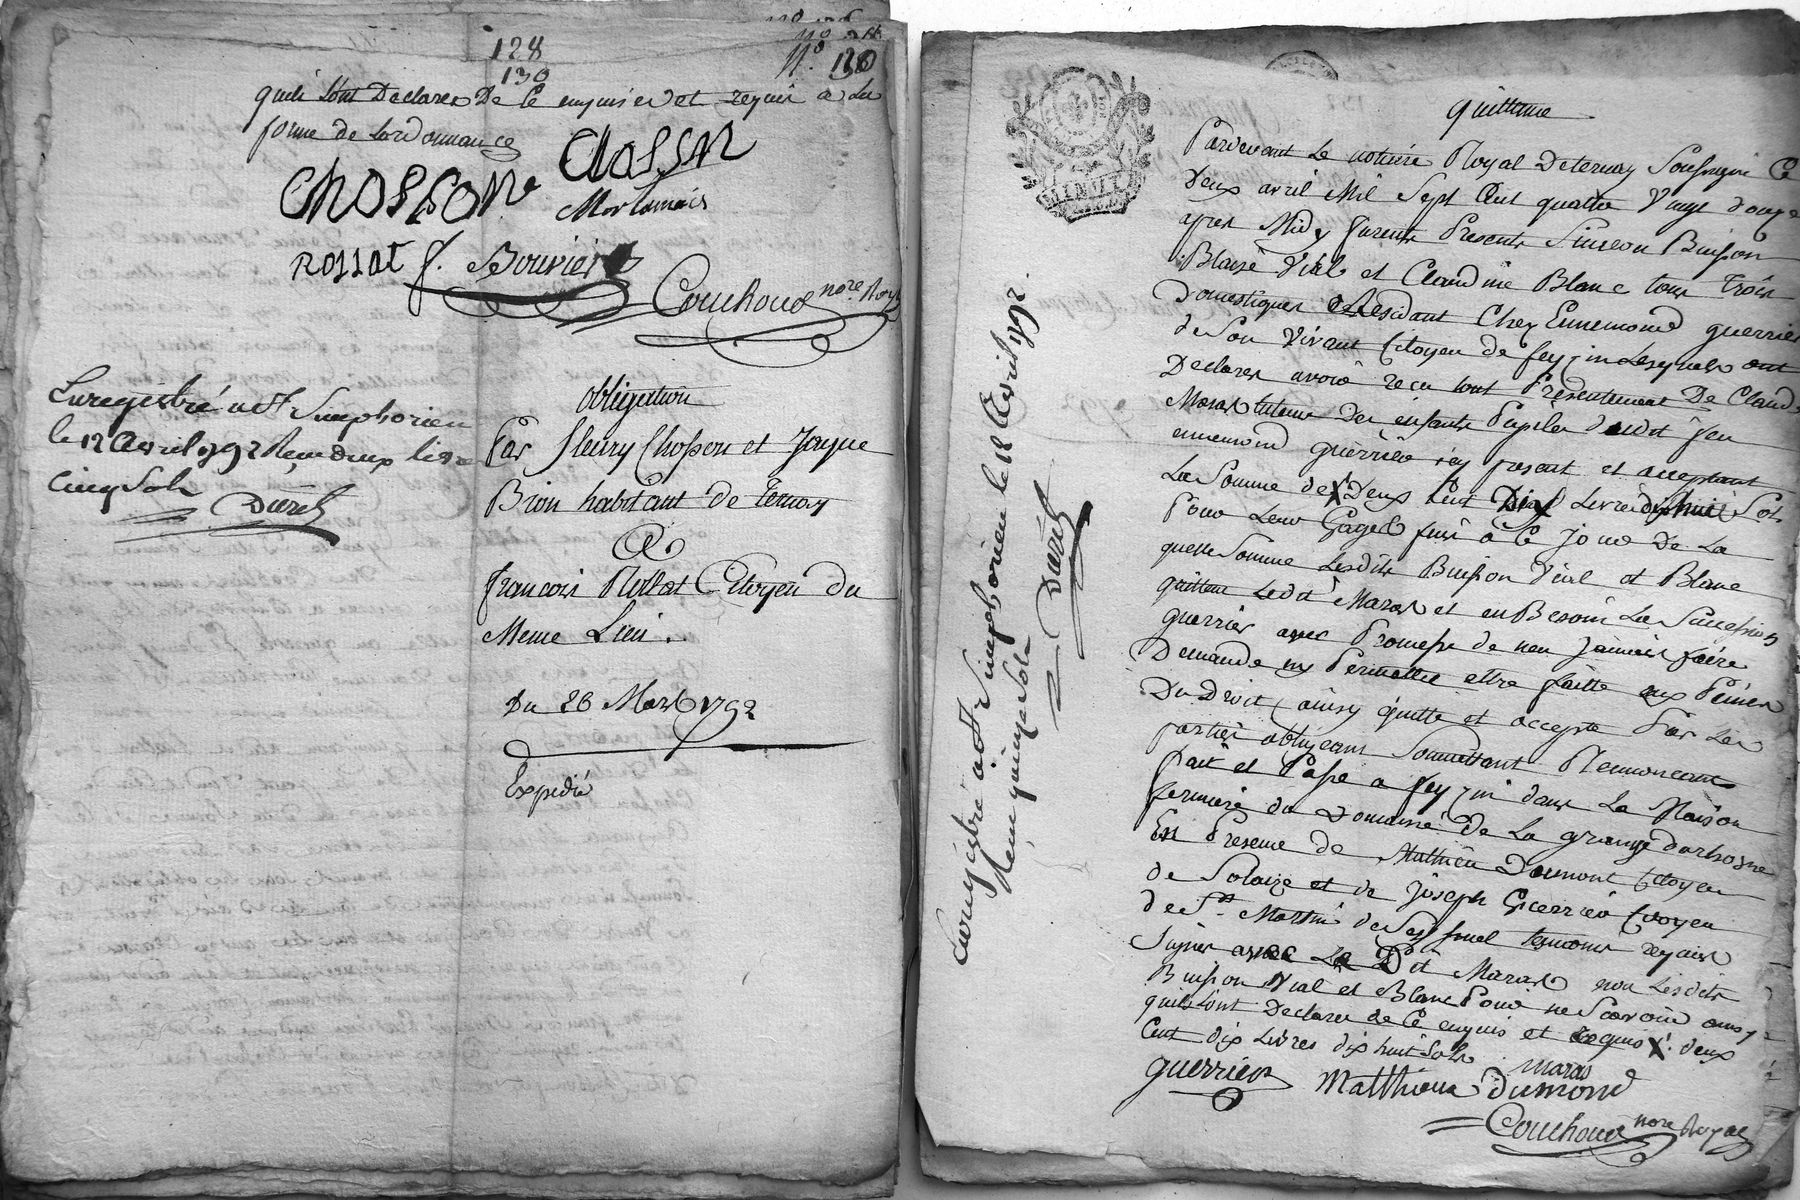 128
130
N° 130
quils sont Declares De Ce enquis et requis a la
forme de Lordonnance
CHOSSON CHOSSON
Mortamais
ROSSAT f. Bouvier
Couchoud nore Royal
Enregistré a St Simphorien
le 12 Avril 1792 Reçu deux livre
Cinq Sols
Durel
obligation
Par fleury Chosson et Jaque
Brion habitant de ternay
A
francois Rossat Citoyen du
Meme Lieu.
Du 26 Mars 1792
Expedié
Enregistré a St Simphorien le 12 Avril 1792.
Reçu quinze Sols
Durel
quittance
Pardevant Le notaire Royal De ternay Soussigné Ce
Deux avril Mil Sept Cent quatre Vingt douze
apres Midy furent Presents Simeon Buisson
Blaise Vial et Claudine Blanc tous Trois
Domestiques Residant Chez Ennemond guerrier
de Son Vivant Citoyen de feyzin Lesquels ont
Declares avoir reçu tout Presentement De Claude
Maras tuteur des enfants Pupiles dudit feu
ennemond guerrier icy present et acceptant
La Somme de X Deux Cent Dix Livres dix huit Sols
Pour Leur Gages finis a Ce Jour De La
quelle Somme Lesdits Buisson Vial et Blanc
quittent Ledit Maras et en Besoin La Succession
guerrier avec Promesse de nen Jamais faire
Demande ny Permettre etre faitte aux Peines
Du Droit ainsy quitté et accepté Par Les
parties obligeant Soumettant Renoncant
fait et Passé a feyzin dans La Maison
fermiere du Domaine de La grange darbosne
En Presence de Mathieu Dumont Citoyen
de Solaize et de Joseph Guerrier Citoyen
de St. Martin de temoins requis
Signes avec Le Dit Maras non Lesdits
Buisson Vial et Blanc Pour ne Scavoir ainsy
quils Sont Declares de Ce enquis et requis X. deux
Cent dix Livres dix huit Sols
guerrier Matthieu Dumond maras
Couchoud nore Royal